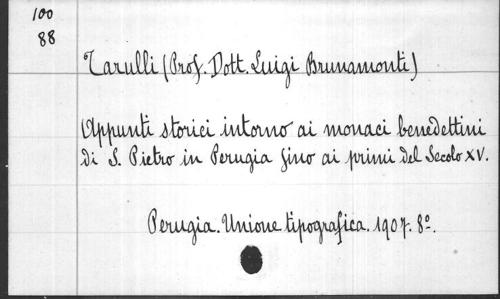 100
88
Tarulli (Prof. Dott. Luigi Brunamonti)
Appunti storici intorno ai monaci benedettini
di S. Pietro in Perugia fino ai primi del Secolo XV.
Perugia. Unione tipografica. 1907. 8º.